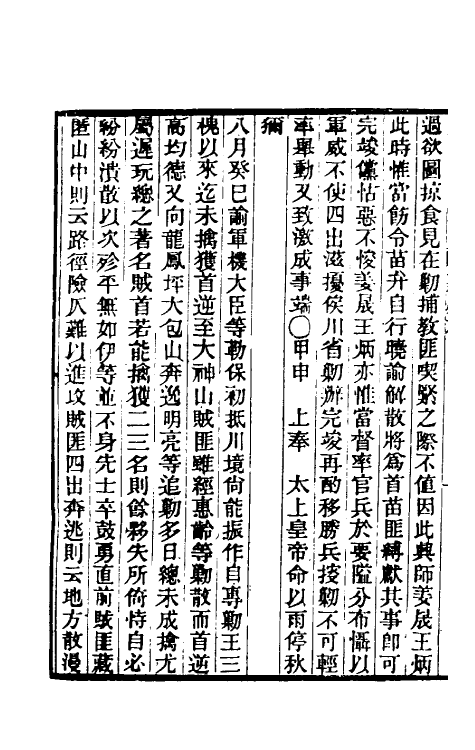 過欲圖掠食見在勦捕教匪喫緊之際不值因此興師姜展王炳
此時惟當飭令苗弁自行曉諭解散將為首苗匪縛獻其事即可
完竣儻怙惡不悛姜展王炳亦惟當督率官兵於要隘分布懾以
軍威不使四出滋擾俟川省勦辦完竣再酌移勝兵接勦不可輕
率舉動又致激成事端〇甲申　上奉　太上皇帝命以雨停秋
獮
八月癸巳諭軍機大臣等勒保初抵川境尚能振作自專勦王三
槐以來迄未擒獲首逆至大神山賊匪雖經惠齡等勦散而首逆
高均德又向龍鳳坪大包山奔逸明亮等追勦多日總未成擒尤
屬遲玩總之著名賊首若能擒獲二三名則餘夥失所倚恃自必
紛紛潰散以次殄平無如伊等並不身先士卒鼓勇直前賊匪藏
匿山中則云路徑險仄難以進攻賊匪四出奔逃則云地方散漫